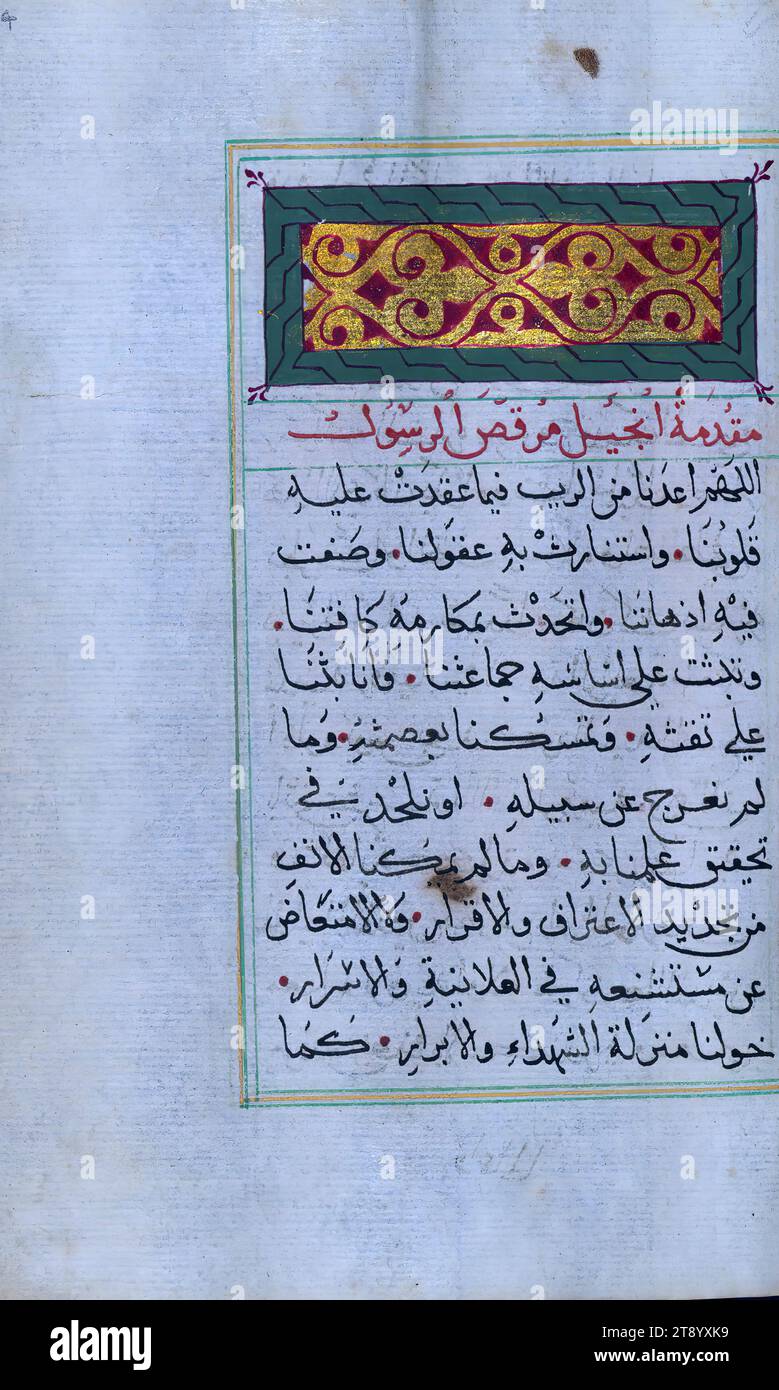 مقدمة انجيل مرقص الرسول
اللهم اعدنا من الريب فيما عقدت عليه
قلوبنا. واستنارت به عقولنا. وصفت
فيه اذهاننا. واتحدت بمكارمه كافتنا.
وتبثت على اساسه جماعتنا. فاننا بثنا
علي تقثه. وتمسكنا بعصمته. وما
لم نعرج عن سبيله. او نلحد في
تحقيق علمنا به. وما لم يمكنا الانف
من تجديد الاعتراف والاقرار. ولا الامتعاض
عن مستشنعه في العلانية والاسرار.
خولنا منزلة الشهداء والابرار. كما
alamy
Image ID: 2T8YXK9
www.alamy.com